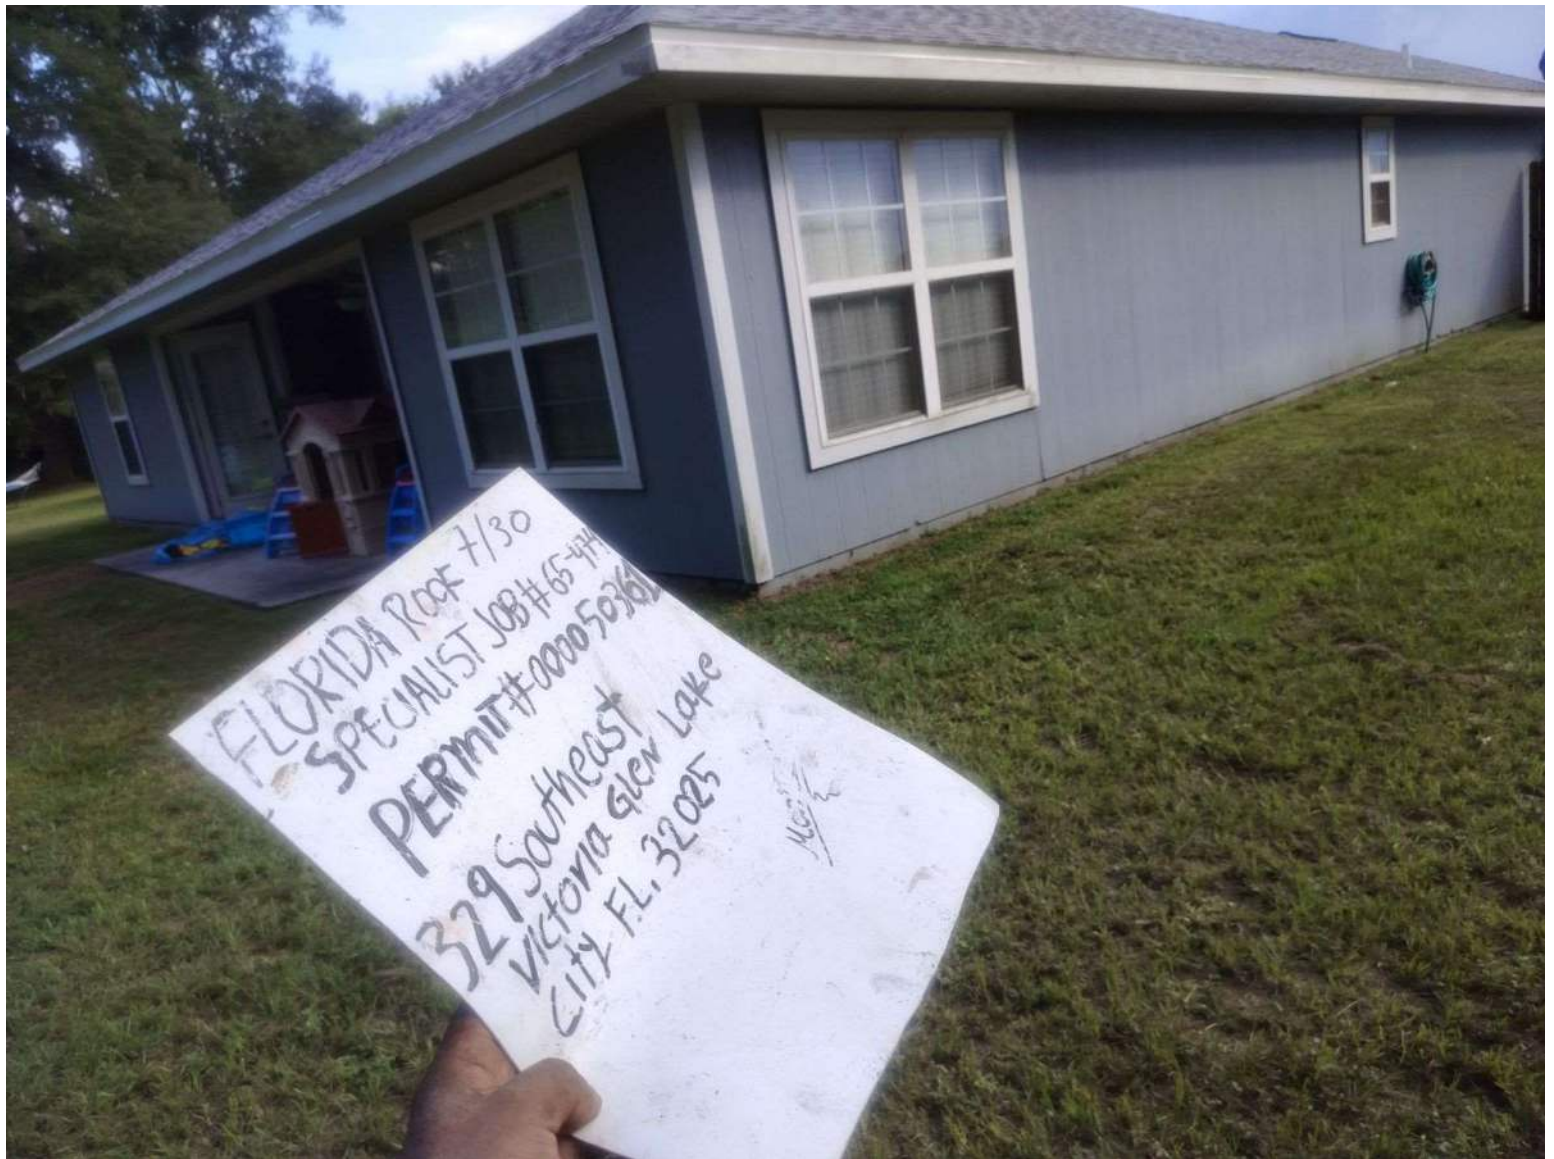 FLORIDA ROOF 7/30
SPECIALIST JOB# 65-474
PERMIT# 000050362
329 Southeast
Victoria Glen Lake
City FL. 32025